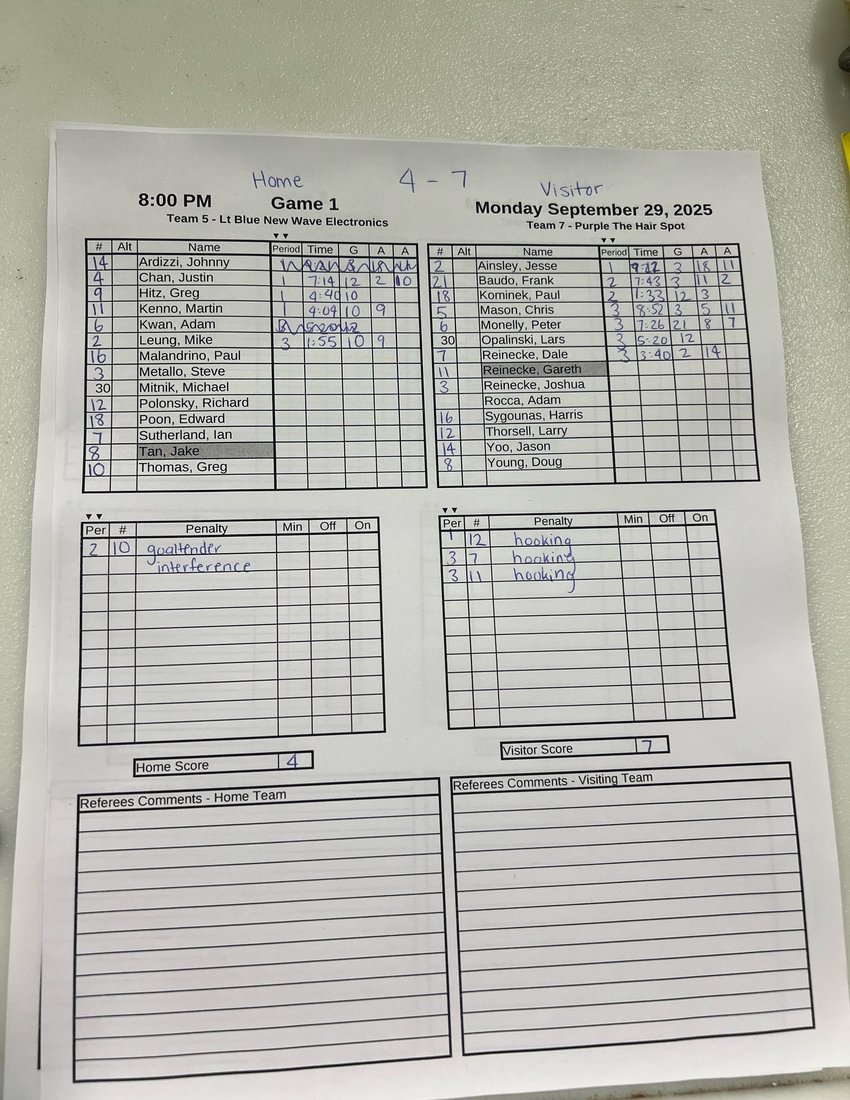 Home 4 - 7 Visitor
8:00 PM Game 1 Monday September 29, 2025
Team 5 - Lt Blue New Wave Electronics
Team 7 - Purple The Hair Spot
# Alt Name Period Time G A A
14 Ardizzi, Johnny
4 Chan, Justin 1 7:14 12 2 10
9 Hitz, Greg 1 4:40 10
11 Kenno, Martin 1 4:04 10 9
6 Kwan, Adam
2 Leung, Mike 3 1:55 10 9
16 Malandrino, Paul
3 Metallo, Steve
30 Mitnik, Michael
12 Polonsky, Richard
18 Poon, Edward
7 Sutherland, Ian
8 Tan, Jake
10 Thomas, Greg
# Alt Name Period Time G A A
2 Ainsley, Jesse 1 9:12 3 18 11
21 Baudo, Frank 2 7:43 3 11 2
18 Kominek, Paul 2 1:33 12 3
5 Mason, Chris 3 8:52 3 5 11
6 Monelly, Peter 3 7:26 21 8 7
30 Opalinski, Lars 3 5:20 12
7 Reinecke, Dale 3 3:40 2 14
11 Reinecke, Gareth
3 Reinecke, Joshua
Rocca, Adam
16 Sygounas, Harris
12 Thorsell, Larry
14 Yoo, Jason
8 Young, Doug
Per # Penalty Min Off On
2 10 goaltender
interference
Per # Penalty Min Off On
1 12 hooking
3 7 hooking
3 11 hooking
Home Score 4
Visitor Score 7
Referees Comments - Home Team
Referees Comments - Visiting Team